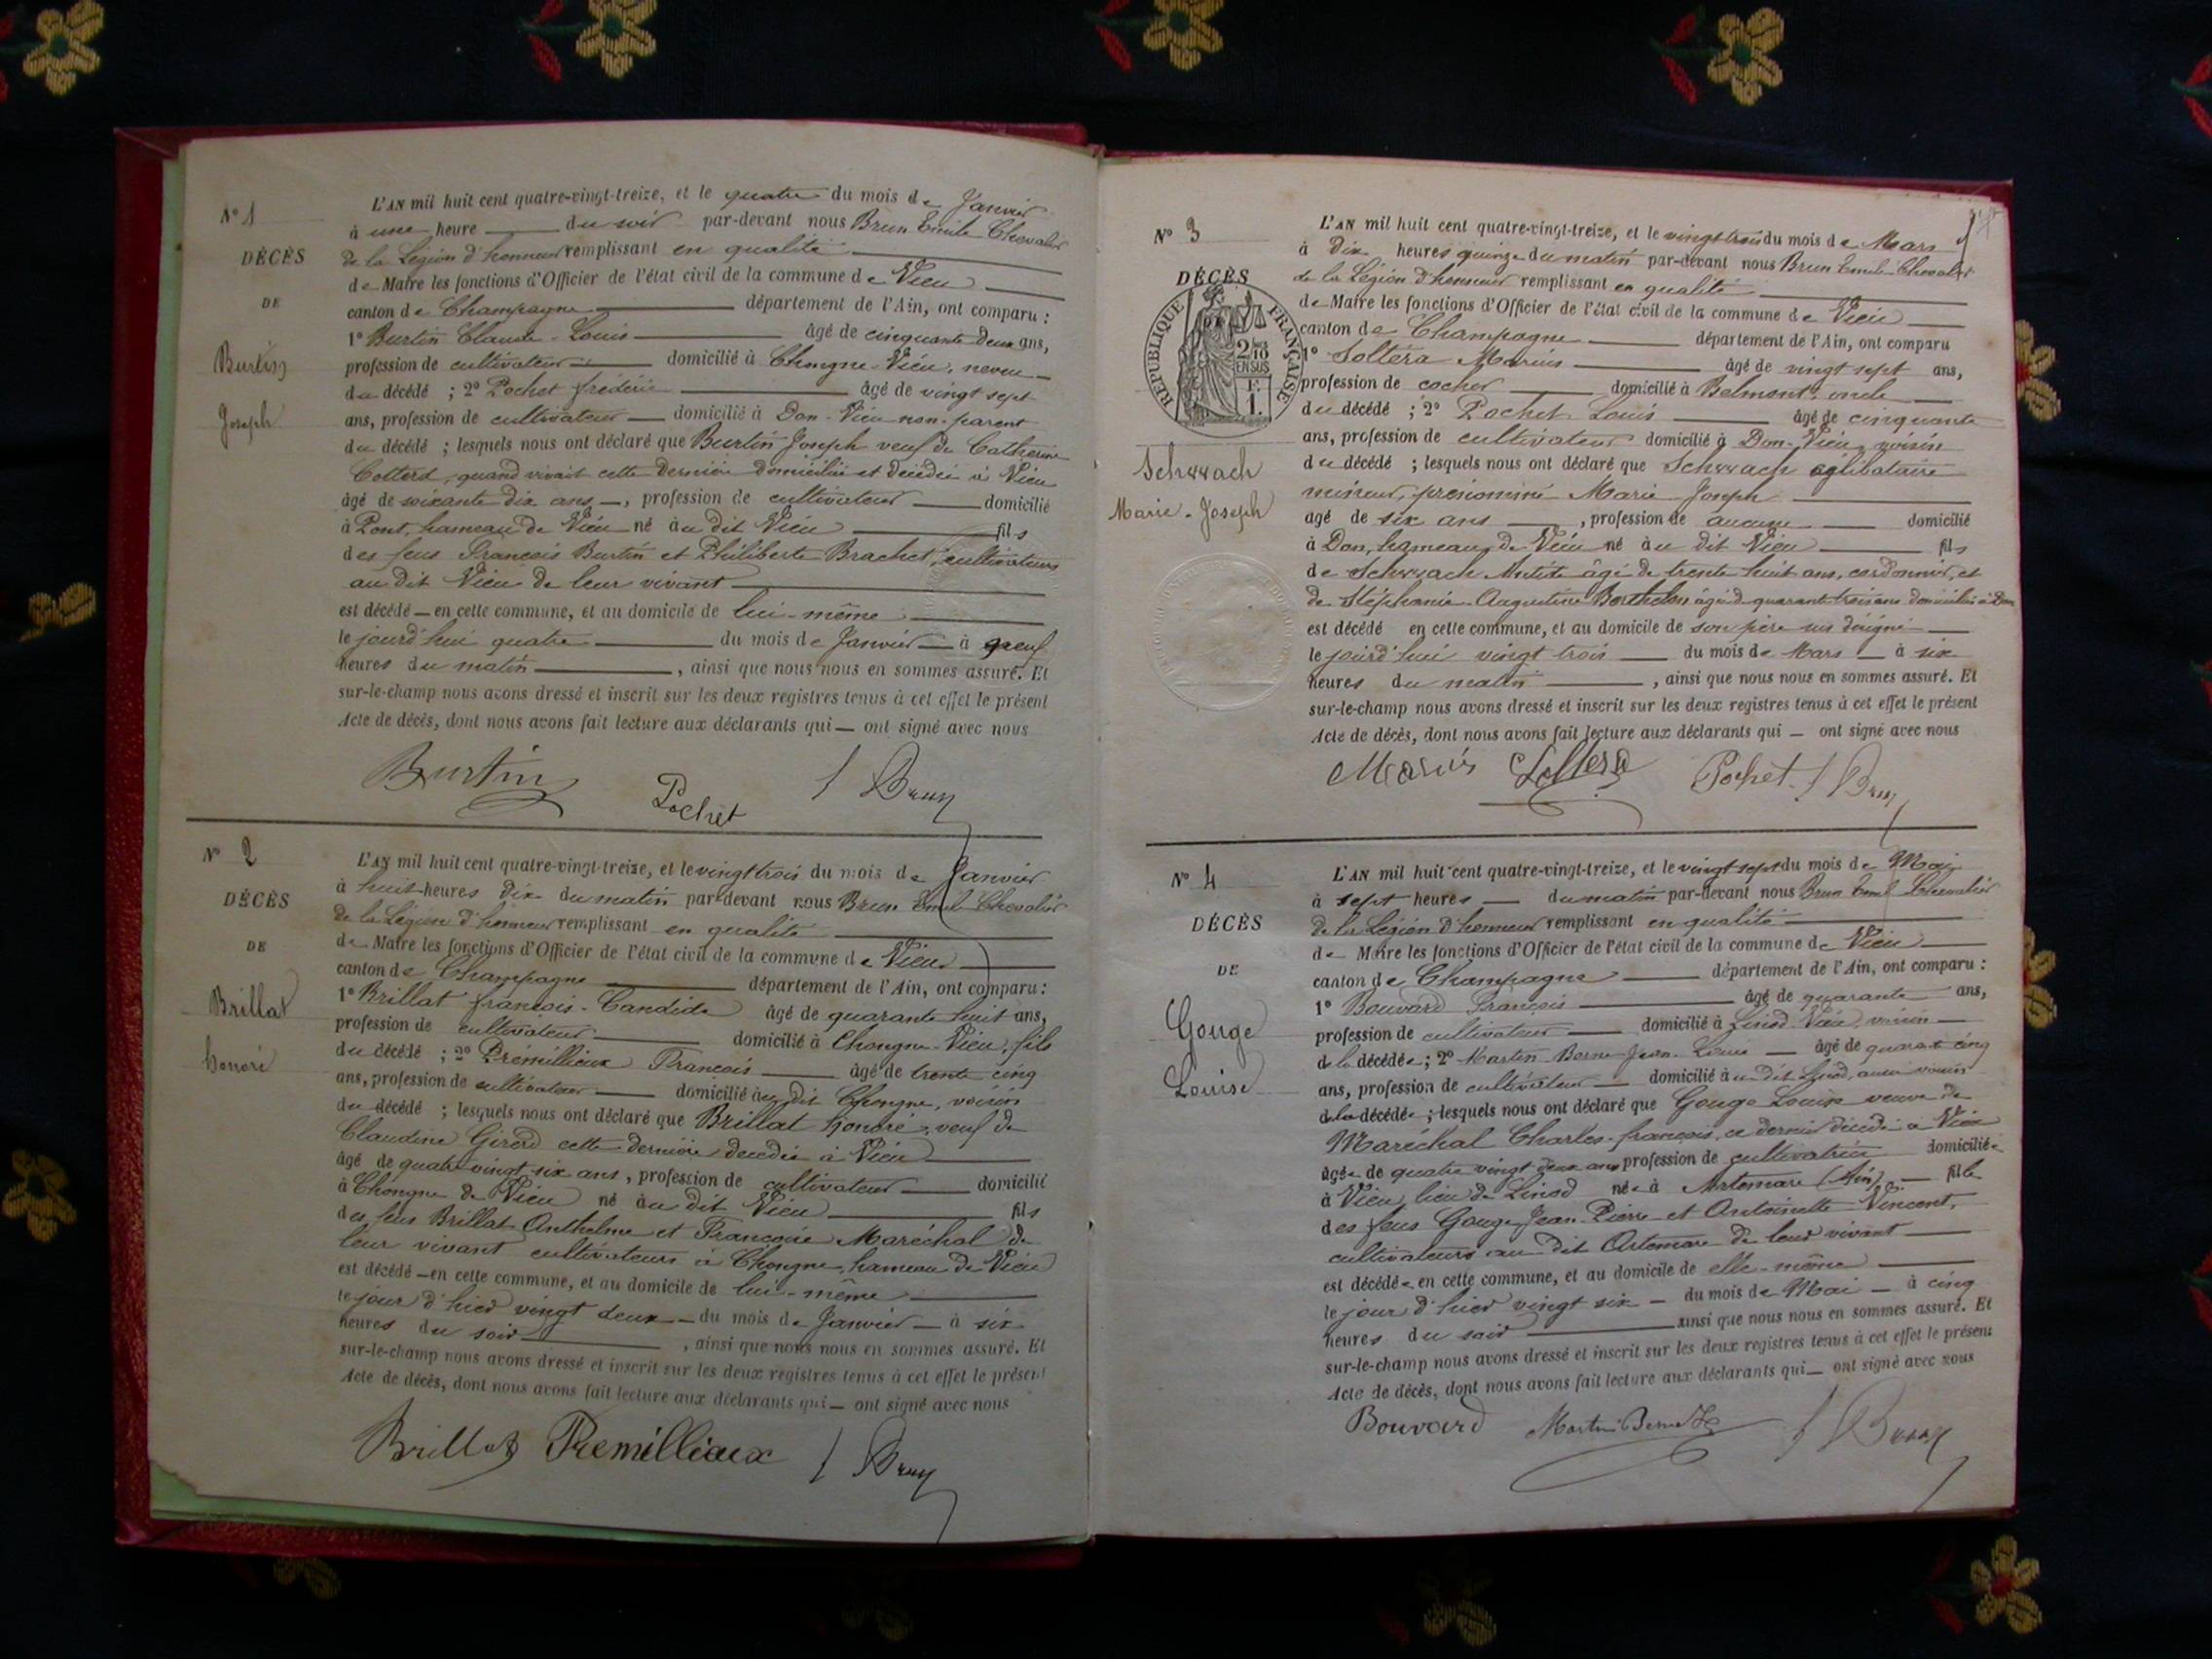 N° 1
DÉCÈS
DE
Burtin
Joseph
L'AN mil huit cent quatre-vingt-treize, et le quatre du mois de Janvier
à une heure du soir par-devant nous Brun Emile Chevalier
de la Légion d'honneur remplissant en qualité
de Maire les fonctions d'Officier de l'état civil de la commune de Vieu
canton de Champagne département de l'Ain, ont comparu :
1° Burtin Claude-Louis âgé de cinquante deux ans,
profession de cultivateur domicilié à Chongne-Vieu, neveu
du décédé ; 2° Pochet frédéric âgé de vingt sept
ans, profession de cultivateur domicilié à Don-Vieu non-parent
du décédé ; lesquels nous ont déclaré que Burtin Joseph veuf de Catherine
Cottard, quand vivait cette dernière domiciliée et décédée à Vieu
âgé de soixante dix ans, profession de cultivateur domicilié
à Pont, hameau de Vieu né au dit Vieu fils
des feus François Burtin et Philiberte Brachet, cultivateurs
au dit Vieu de leur vivant
est décédé en cette commune, et au domicile de lui-même
le jourd'hui quatre du mois de Janvier à neuf
heures du matin, ainsi que nous nous en sommes assuré. Et
sur-le-champ nous avons dressé et inscrit sur les deux registres tenus à cet effet le présent
Acte de décès, dont nous avons fait lecture aux déclarants qui ont signé avec nous
Burtin Pochet Brun
N° 2
DÉCÈS
DE
Brillat
honoré
L'AN mil huit cent quatre-vingt-treize, et le vingt trois du mois de Janvier
à huit heures dix du matin par-devant nous Brun Emile Chevalier
de la Légion d'honneur remplissant en qualité
de Maire les fonctions d'Officier de l'état civil de la commune de Vieu
canton de Champagne département de l'Ain, ont comparu :
1° Brillat françois-Candide âgé de quarante huit ans,
profession de cultivateur domicilié à Chongne-Vieu, fils
du décédé ; 2° Prémillieux François âgé de trente cinq
ans, profession de cultivateur domicilié au dit Chongne, voisin
du décédé ; lesquels nous ont déclaré que Brillat honoré, veuf de
Claudine Girerd cette dernière décédée à Vieu
âgé de quatre vingt six ans, profession de cultivateur domicilié
à Chongne de Vieu né au dit Vieu fils
des feus Brillat Anthelme et Françoise Maréchal de
leur vivant cultivateurs à Chongne, hameau de Vieu
est décédé en cette commune, et au domicile de lui-même
le jour d'hier vingt deux du mois de Janvier à six
heures du soir, ainsi que nous nous en sommes assuré. Et
sur-le-champ nous avons dressé et inscrit sur les deux registres tenus à cet effet le présent
Acte de décès, dont nous avons fait lecture aux déclarants qui ont signé avec nous
Brillat Premillieux Brun
N° 3
DÉCÈS
DE
RÉPUBLIQUE FRANÇAISE
2/10 EN SUS
F. 1.
Schwach
Marie-Joseph
L'AN mil huit cent quatre-vingt-treize, et le vingt trois du mois de Mars
à dix heures quinze du matin par-devant nous Brun Emile Chevalier
de la Légion d'honneur remplissant en qualité
de Maire les fonctions d'Officier de l'état civil de la commune de Vieu
canton de Champagne département de l'Ain, ont comparu
1° Soltéra Marius âgé de vingt sept ans,
profession de cocher domicilié à Belmont, oncle
du décédé ; 2° Pochet Louis âgé de cinquante
ans, profession de cultivateur domicilié à Don-Vieu, voisin
du décédé ; lesquels nous ont déclaré que Schwach célibataire
mineur, prénommé Marie Joseph
âgé de six ans, profession de aucune domicilié
à Don, hameau de Vieu né au dit Vieu fils
de Schwach âgé de trente huit ans, cordonnier, et
de Stéphanie-Augustine Berthelon âgée de quarante trois ans domiciliés à Don
est décédé en cette commune, et au domicile de son père sus désigné
le jourd'hui vingt trois du mois de Mars à six
heures du matin, ainsi que nous nous en sommes assuré. Et
sur-le-champ nous avons dressé et inscrit sur les deux registres tenus à cet effet le présent
Acte de décès, dont nous avons fait lecture aux déclarants qui ont signé avec nous
Marius Soltera Pochet Brun
N° 4
DÉCÈS
DE
Gouge
Louise
L'AN mil huit cent quatre-vingt-treize, et le vingt sept du mois de Mai
à sept heures du matin par-devant nous Brun Emile Chevalier
de la Légion d'honneur remplissant en qualité
de Maire les fonctions d'Officier de l'état civil de la commune de Vieu
canton de Champagne département de l'Ain, ont comparu :
1° Bouvard François âgé de quarante ans,
profession de cultivateur domicilié à Linod Vieu, voisin
de la décédée ; 2° Martin-Berne Jean-Louis âgé de quarante cinq
ans, profession de cultivateur domicilié au dit Linod, aussi voisin
de la décédée ; lesquels nous ont déclaré que Gouge Louise veuve de
Maréchal Charles-françois, ce dernier décédé à Vieu
âgée de quatre vingt deux ans profession de cultivatrice domiciliée
à Vieu, lieu de Linod née à Artemare (Ain) fille
des feus Gouge Jean-Pierre et Antoinette Vincent,
cultivateurs au dit Artemare de leur vivant
est décédée en cette commune, et au domicile de elle-même
le jour d'hier vingt six du mois de Mai à cinq
heures du soir ainsi que nous nous en sommes assuré. Et
sur-le-champ nous avons dressé et inscrit sur les deux registres tenus à cet effet le présent
Acte de décès, dont nous avons fait lecture aux déclarants qui ont signé avec nous
Bouvard Martin Berne Brun